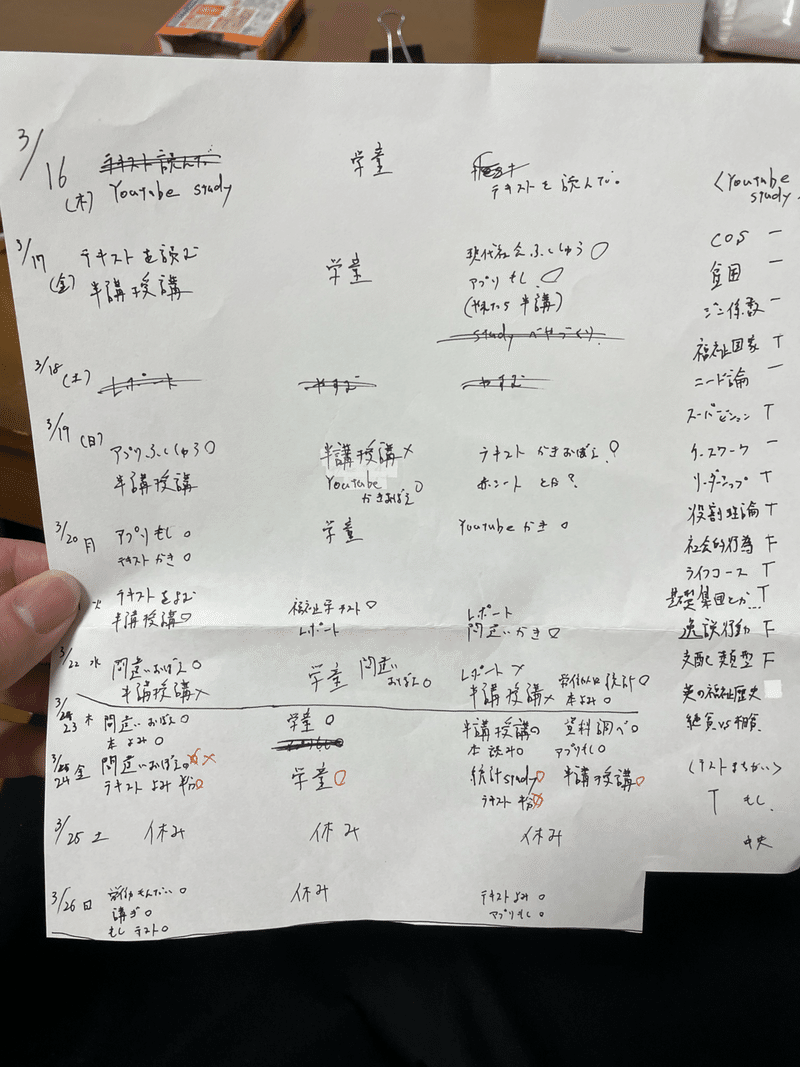 3/16 (木) テキスト読んだ 学童 テキストを読んだ。
Youtube study
3/17 (金) テキストを読む 学童 現代社会ふくしゅう ○
半講授講 アプリもし ○
(やれたら 半講)
study
3/18 (土) レポート やすむ やすむ
3/19 (日) アプリふくしゅう ○ 半講授講 × テキスト かきおぼえ ?
半講授講 Youtube かきおぼえ ○
3/20 月 アプリもし ○ 学童 Youtube かき ○
テキストかき ○
火 テキストをよむ 福祉学テスト ○ レポート
半講授講 ○ レポート 間違いかき ○
3/22 水 間違いおぼえ ○ 学童 間違いおぼえ ○ レポート ×
半講授講 × 半講授講 × 本よみ ○
3/23 木 間違いおぼえ ○ 学童 ○ 半講授講 ○ 資料調べ ○
本よみ ○ 本読み ○ アプリもし ○
3/24 金 間違いおぼえ × 学童 ○ 統計study ○ 半講授講 ○
テキストよみ 半分 ○ テキスト 半分
3/25 土 休み 休み 休み
3/26 日 労働もんだい ○ 休み テキストよみ ○
講ぎ ○ アプリもし ○
もしテスト ○
<Youtube study>
COS ー
貧困 ー
ジニ係数 ー
福祉国家 T
ニード論 ー
スーパービジョン T
ケースワーク ー
リーダーシップ T
役割理論 T
社会的行為 F
ライフコース T
基礎集団とか… T
逸脱行動 F
支配類型 F
英の福祉歴史
絶貧vs相貧
<テストまちがい>
T もし
中央